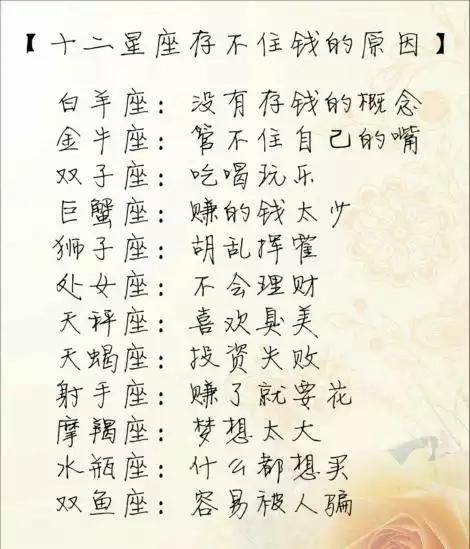 【十二星座存不住钱的原因】
白羊座：没有存钱的概念
金牛座：管不住自己的嘴
双子座：吃喝玩乐
巨蟹座：赚的钱太少
狮子座：胡乱挥霍
处女座：不会理财
天秤座：喜欢臭美
天蝎座：投资失败
射手座：赚了就要花
摩羯座：梦想太大
水瓶座：什么都想买
双鱼座：容易被人骗